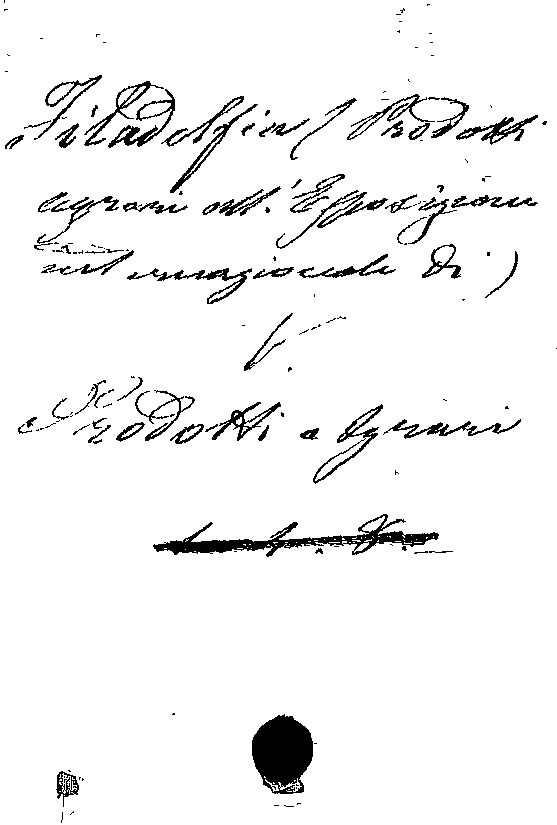 Filadelfia (Prodotti
agrari all'Esposizione
internazionale di)
V.
Prodotti agrari